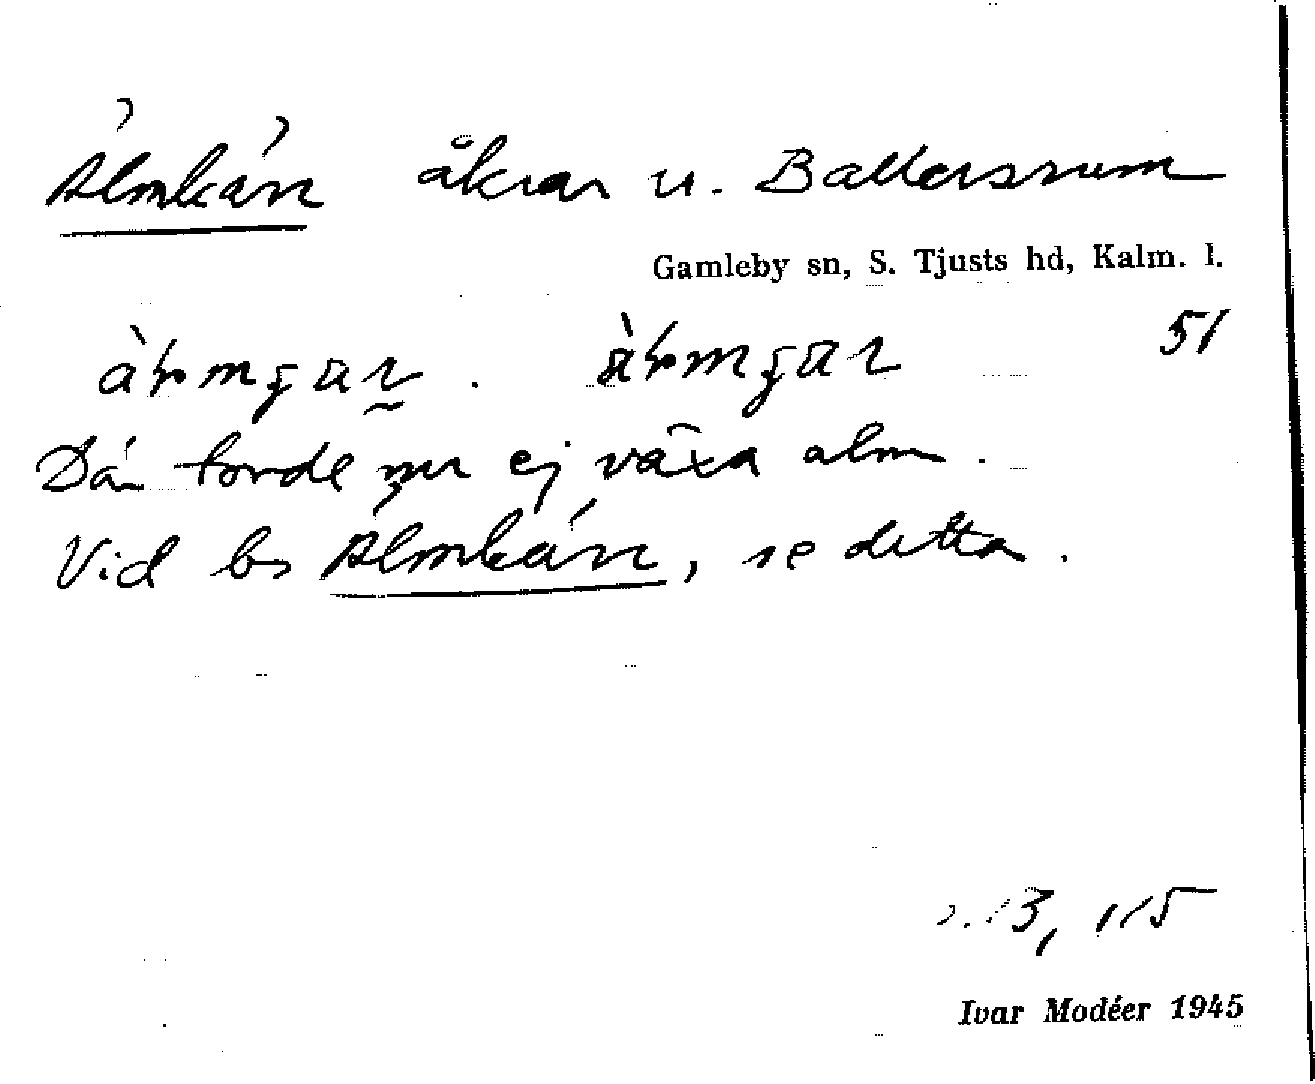 Älmkärr åkrar u. Ballersrum
Gamleby sn, S. Tjusts hd, Kalm. l.
51
Där torde nu ej växa alm.
Vid bs Älmkärr, se detta.
3, 115
Ivar Modéer 1945